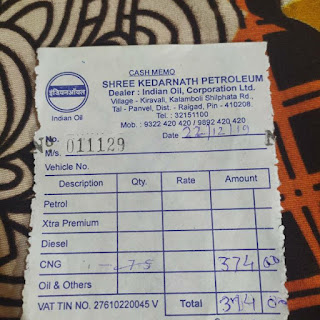 CASH MEMO
इंडियनऑयल
Indian Oil
SHREE KEDARNATH PETROLEUM
Dealer : Indian Oil, Corporation Ltd.
Village - Kiravali, Kalamboli Shilphata Rd.,
Tal - Panvel, Dist. - Raigad, Pin - 410208
Tel. : 32151100
Mob. : 9322 420 420 / 9892 420 420
No. 011129 Date 22/12/19
M/s.
Vehicle No.
Description Qty. Rate Amount
Petrol
Xtra Premium
Diesel
CNG 374 00
Oil & Others
VAT TIN NO. 27610220045 V Total 374